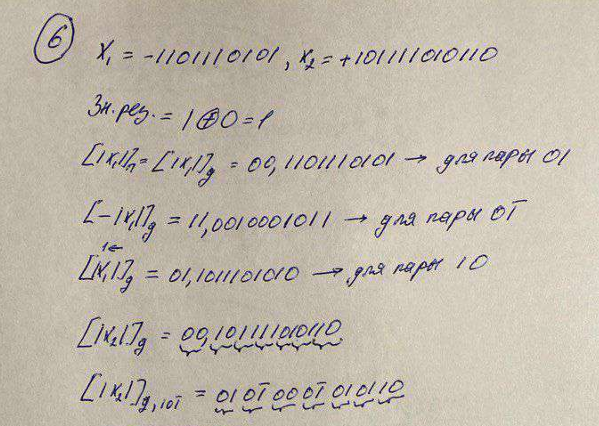 6
X₁ = -1101110101, X₂ = +101111010110
Зн.рез. = 1⊕0 = 1
[|X₁|]п = [|X₁|]g = 00,1101110101 → для пары 01
[-|X₁|]g = 11,0010001011 → для пары 01̅
1←
[|X₁|]g = 01,1011101010 → для пары 10
[|X₂|]g = 00,101111010110
[|X₂|]g,101̅ = 01 01̅ 00 01̅ 01 01 10